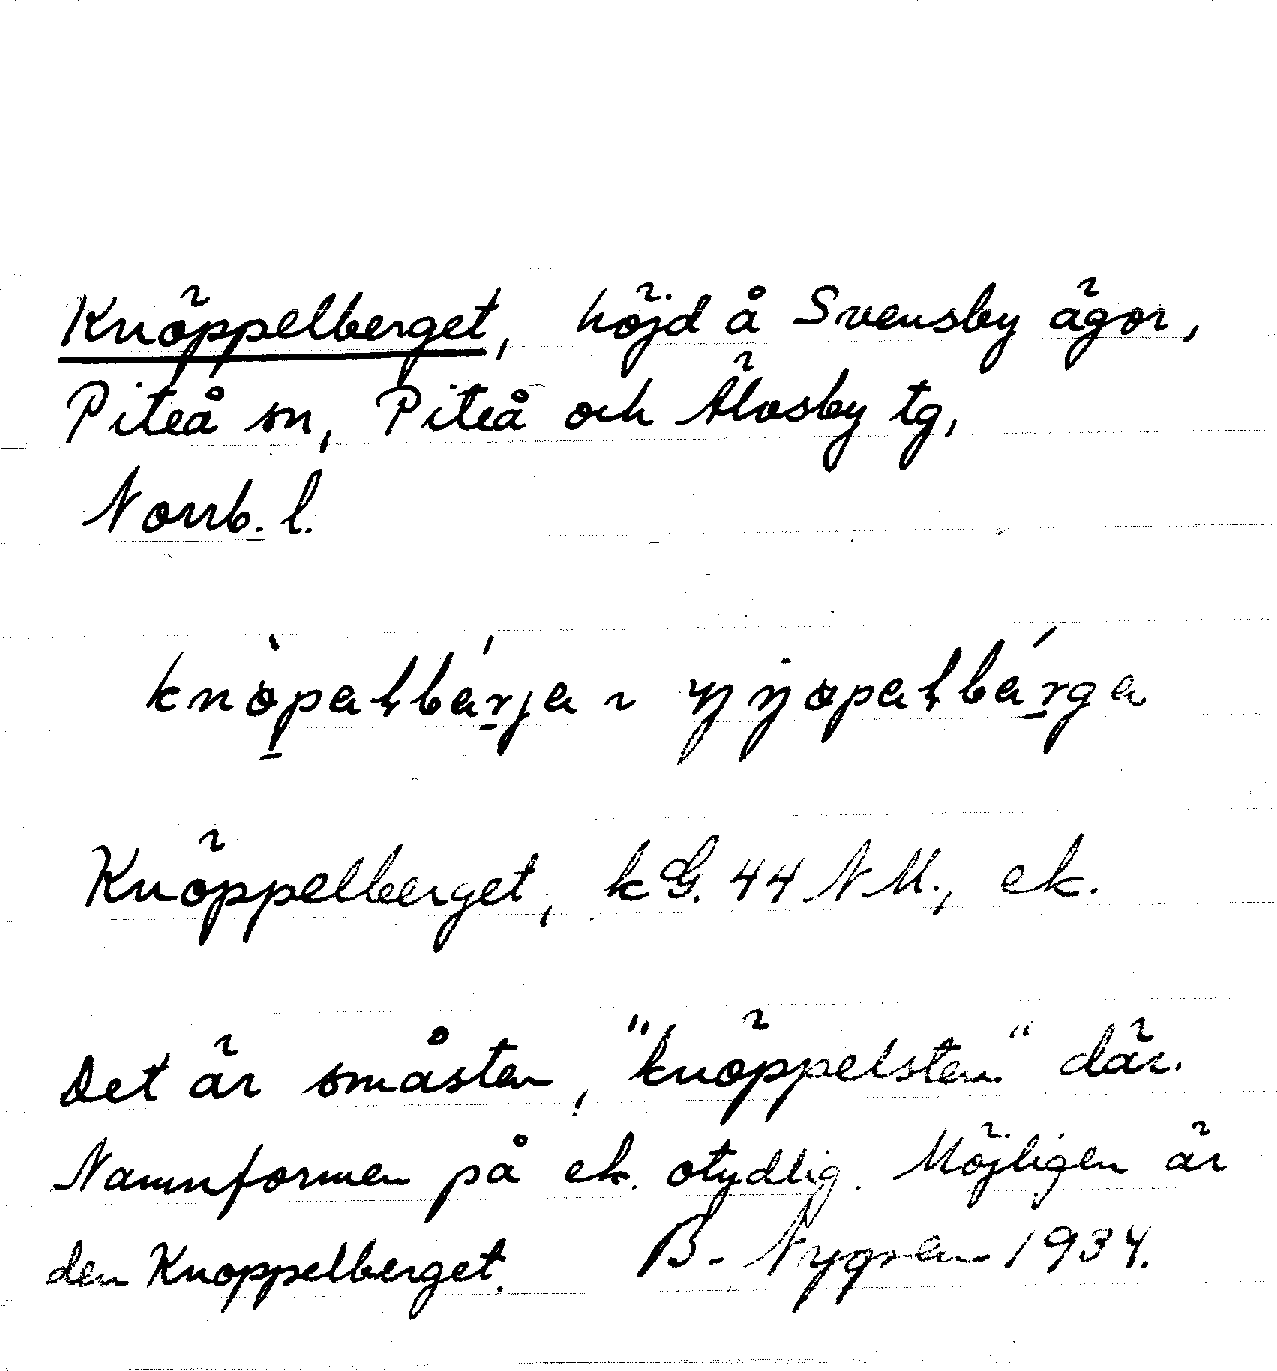 Knöppelberget, höjd å Svensby ägor,
Piteå sn, Piteå och Älvsby tg,
Norrb. l.
Knöppelberget, kG. 44 NM., ek.
Det är småsten, "knöppelsten" där.
Namnformen på ek. otydlig. Möjligen är
den Knoppelberget. B. Nygren 1934.